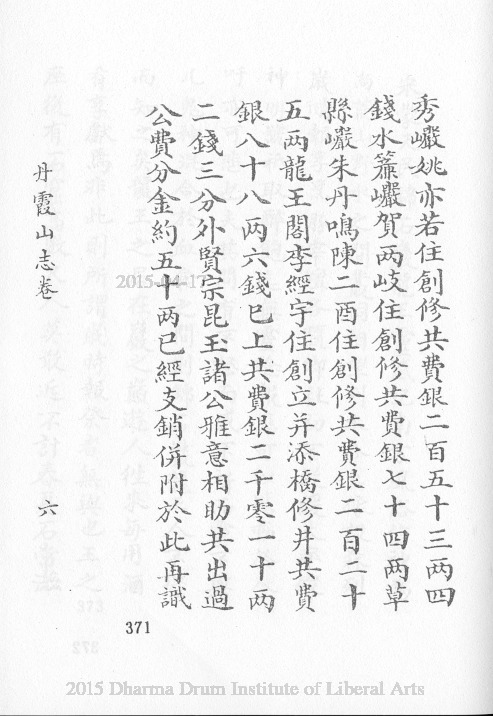 秀巖姚亦若住創修共費銀二百五十三两四
錢水簾巖賀两岐住創修共費銀七十四两草
縣巖朱丹鳴陳二酉住創修共費銀二百二十
五两龍王閣李經宇住創立并添橋修井共費
銀八十八两六錢已上共費銀二千零一十两
二錢三分外賢宗昆玉諸公雅意相助共出過
公費分金約五十两已經支銷併附於此再識
丹霞山志卷 六
371
2015-04-17
2015 Dharma Drum Institute of Liberal Arts